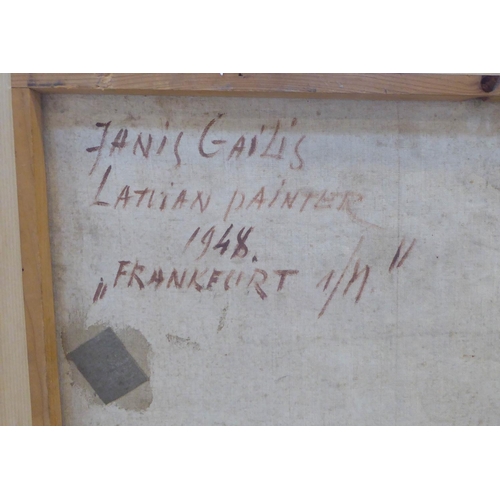 Janis Gailis
Latvian painter
1948.
„FRANKFURT 1/M.”